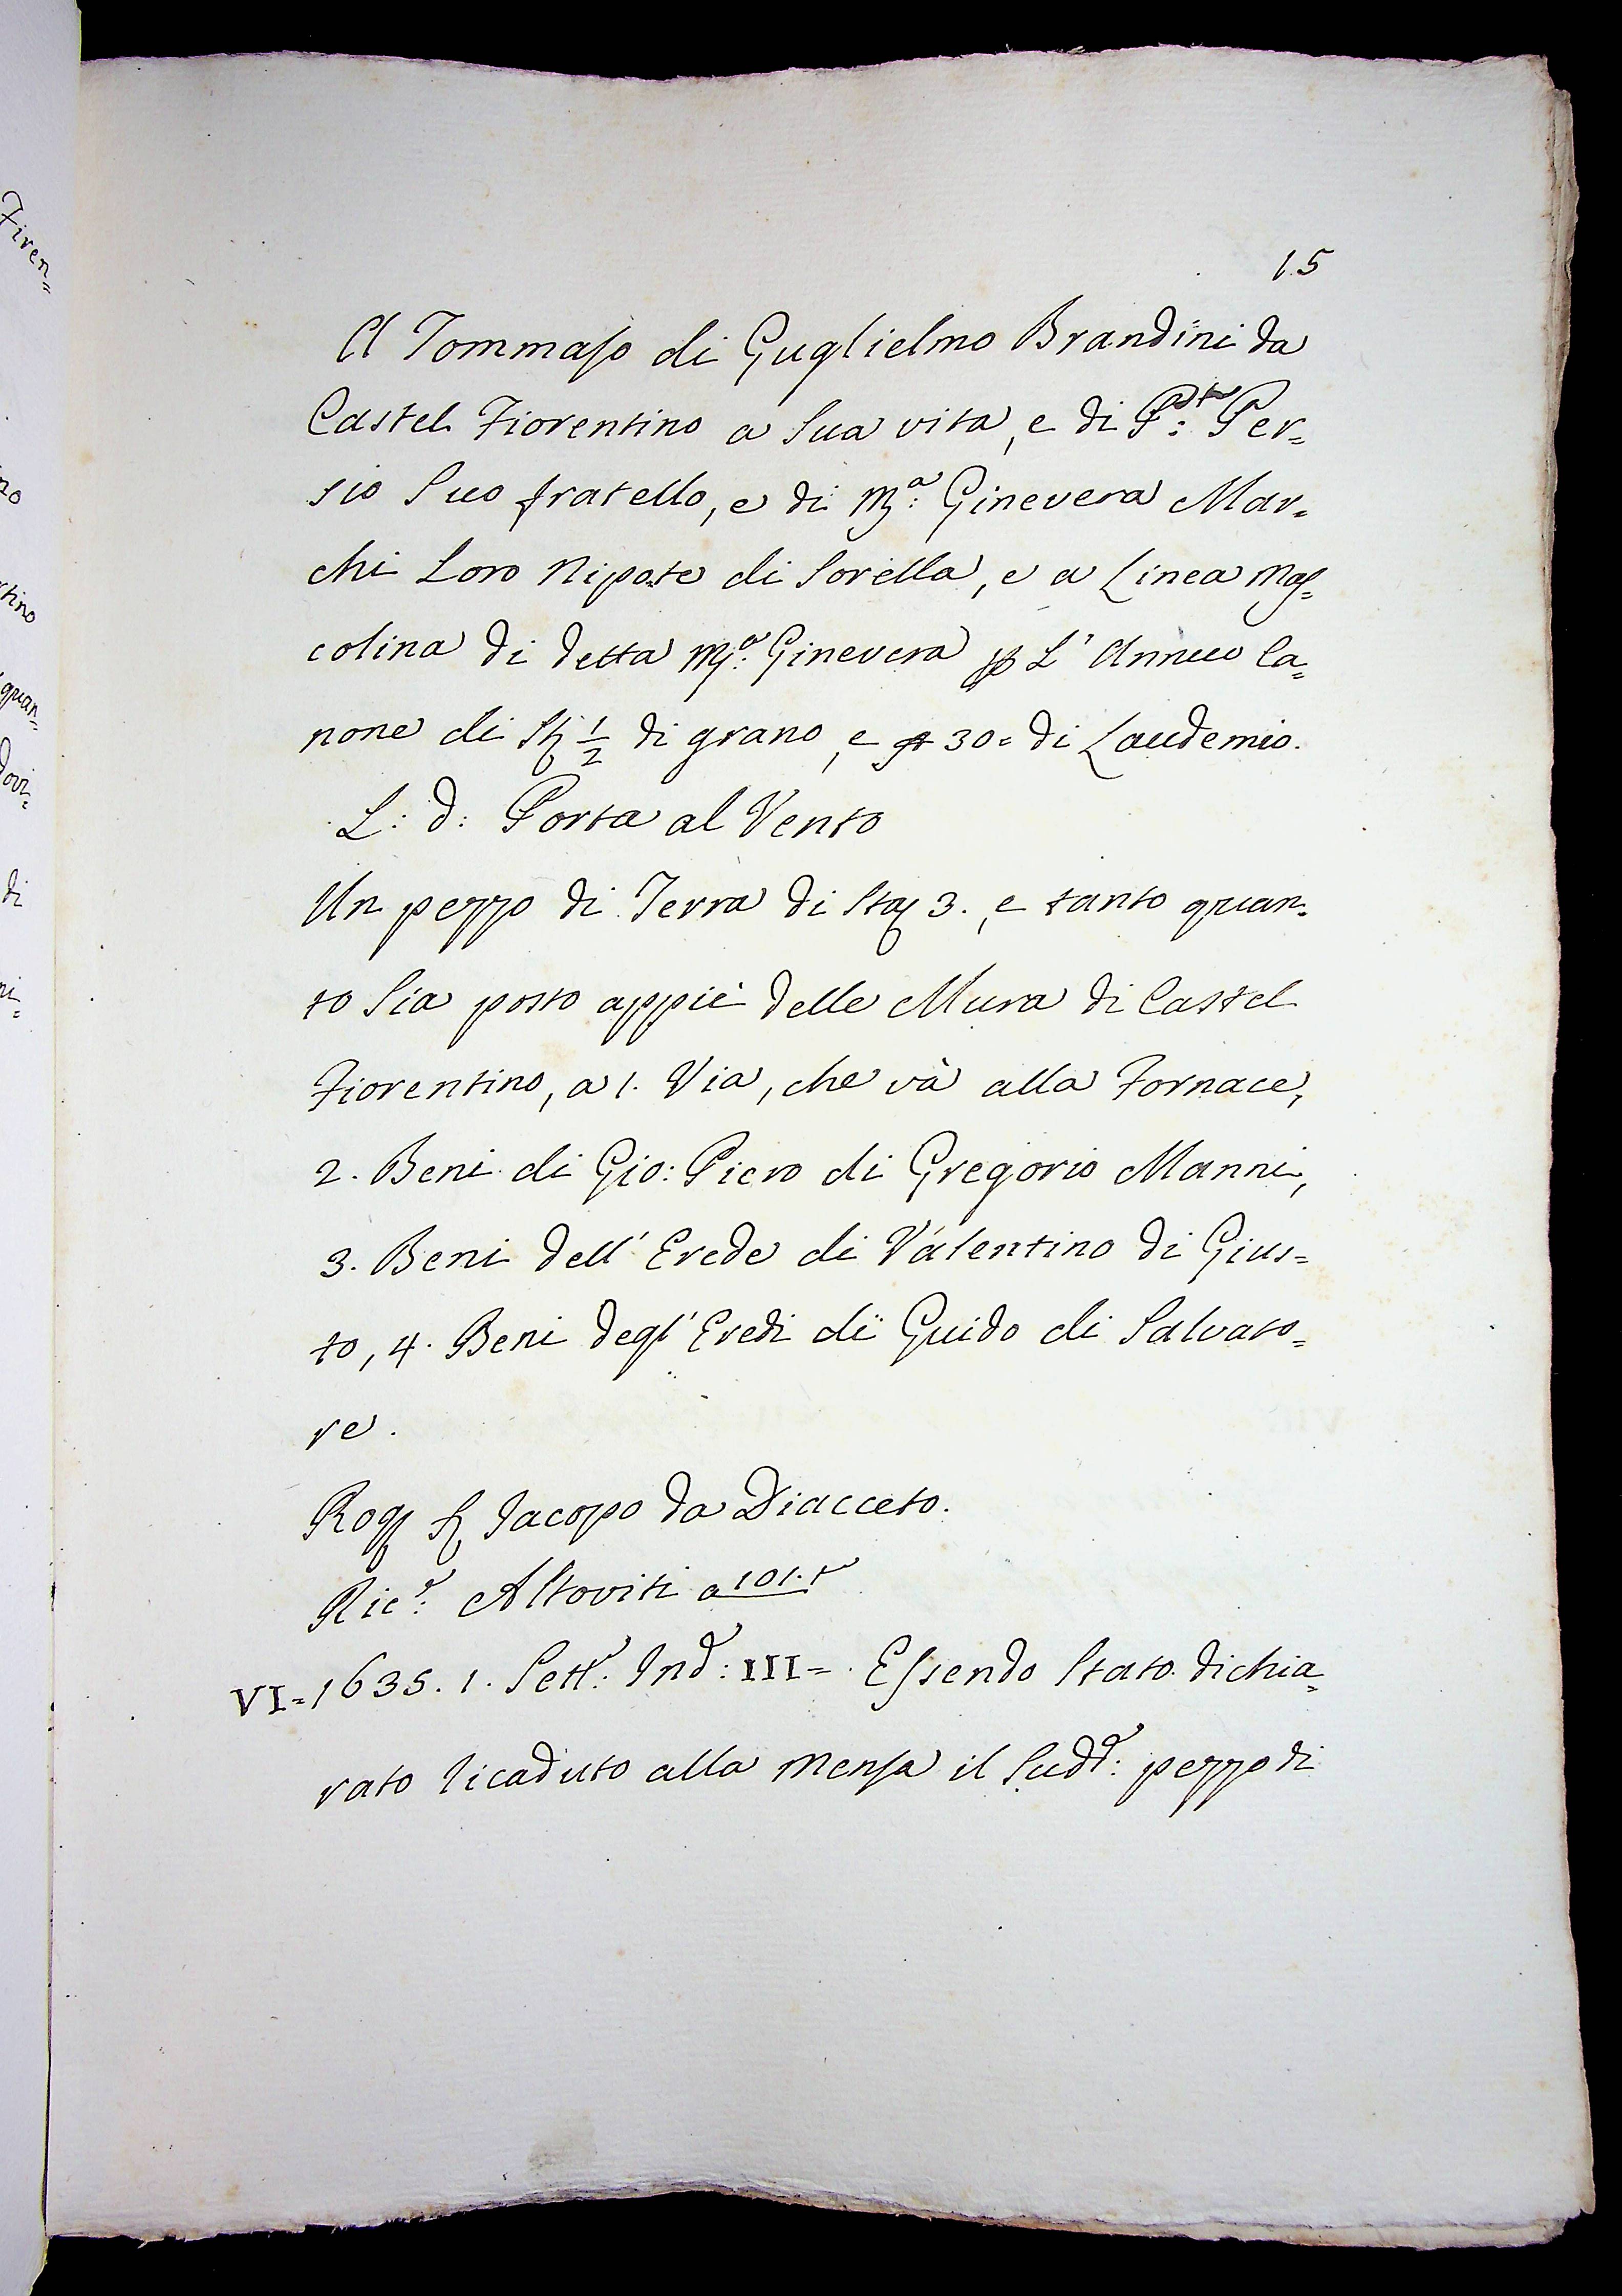 15
A Tommaso di Guglielmo Brandini da
Castel Fiorentino a Sua vita, e di Pᵗᵉ: Per=
sio Suo fratello, e di Mª: Ginevera Mar=
chi Loro Nipote di Sorella, e a Linea Mas=
colina di detta Mª: Ginevera p L' Annuo Ca=
none di St ½ di grano, e 30= di Laudemio.
L: d: Porta al Vento
Un pezzo di Terra di Sta 3., e tanto quan=
to Sia posto appiè delle Mura di Castel
Fiorentino, a 1. Via, che và alla Fornace,
2. Beni di Gio: Piero di Gregorio Manni,
3. Beni dell' Erede di Valentino di Gius=
to, 4. Beni degl' Eredi di Guido di Salvato=
re.
Rog S Jacopo da Diacceto.
Ricᵒ: Altoviti a 101. t
VI=1635. 1. Settᵉ: Indᵉ: III=. Essendo Stato dichia=
rato ricaduto alla Mensa il Suddᵒ: pezzo di
Firen=
no
tino
quan=
dovi=
di
ni=